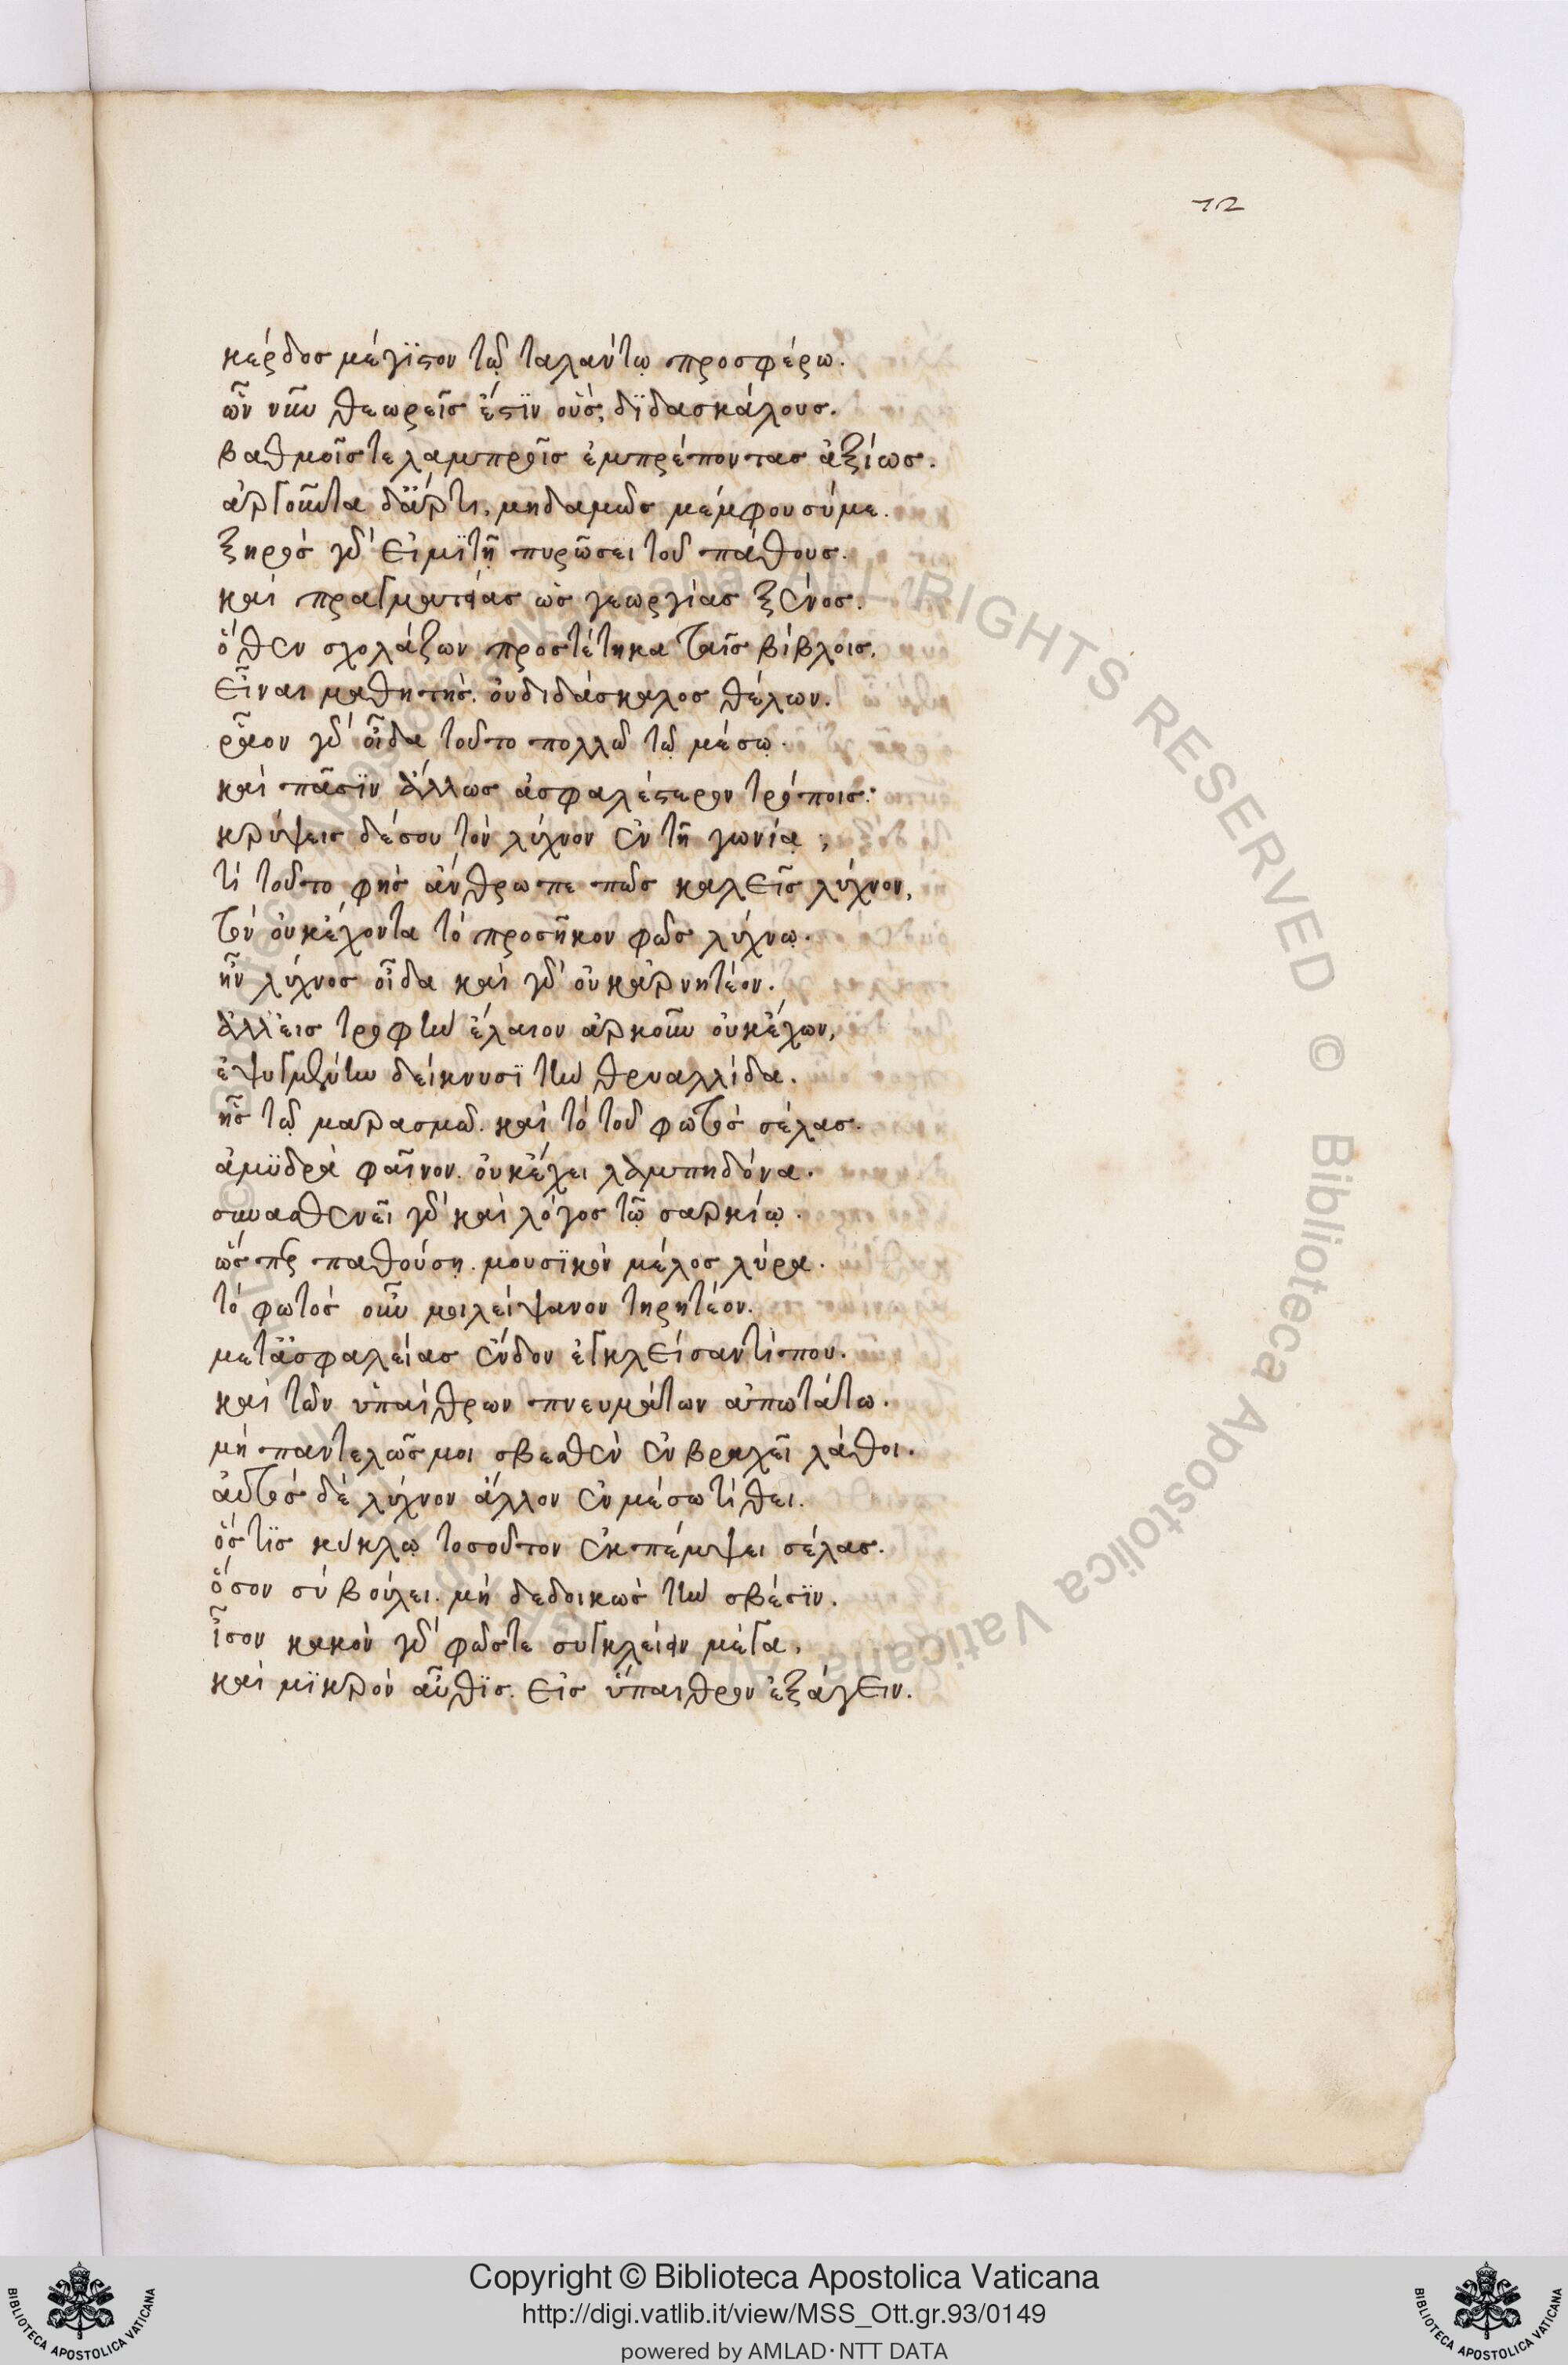 72
κέρδος μέγϊστον τῷ ταλάντῳ προσφέρω.
ὧν νῦν θεωρεῖς ἐστϊν οὓς, δϊδασκάλους.
βαθμοῖς τε λαμπροῖς ἐμπρέποντας ἀξίως.
ἀργοῦντα δ' ἄρτι, μηδαμῶς μέμφου σύ με.
ξηρὸς γὰρ εἰμϊ τῇ πυρώσει τοῦ πάθους.
καὶ πραγματείας ὡς γεωργίας ξένος.
ὅθεν σχολάζων προστέτηκα ταῖς βίβλοις,
εἶναι μαθητὴς. οὐ διδάσκαλος θέλων.
ρᾷον γὰρ οἶδα τοῦτο πολλῷ τῷ μέσῳ.
καὶ πᾶσϊν ἄλλως ἀσφαλέστερον τρόποις.
κρύψεις δέ σου τὸν λύχνον ἐν τῇ γωνίᾳ;
τί τοῦτο φῂς ἄνθρωπε πῶς καλεῖς λύχνον,
τὸν οὐκ ἔχοντα τὸ προσῆκον φῶς λύχνῳ.
ἦν λύχνος οἶδα καὶ γὰρ οὐκ ἀρνητέον.
ἀλλ' εἰς τροφὴν ἔλαιον ἀρκοῦν οὐκ ἔχων,
ἐψυγμένην δείκνυσϊ τὴν θρυαλλίδα.
ἧς τῷ μαρασμῷ. καὶ τὸ τοῦ φωτὸς σέλας.
ἀμϋδρὰ φαῖνον. οὐκ ἔχει λαμπηδόνα.
συνασθενεῖ γὰρ καὶ λόγος τῷ σαρκίῳ.
ὥσπερ παθούσῃ. μουσϊκὸν μέλος λύρᾳ.
τὸ φωτὸς οὖν μοι λείψανον τηρητέον.
μετ' ἀσφαλείας ἔνδον ἐγκλείσαντί που.
καὶ τῶν ὑπαίθρων πνευμάτων ἀπωτάτω.
μὴ παντελῶς μοι σβεσθὲν ἐν βραχεῖ λάθοι.
αὐτὸς δὲ λύχνον ἄλλον ἐν μέσω τίθει.
ὅς τϊς κύκλῳ τοσοῦτον ἐκπέμψει σέλας.
ὅσον σὺ βούλει. μὴ δεδοικὼς τὴν σβέσϊν.
ἶσον κακὸν γὰρ φῶς τε συγκλείειν μέγα,
καὶ μϊκρὸν αὖθϊς. εἰς ὕπαιθρον ἐξάγειν.
Copyright © Biblioteca Apostolica Vaticana
http://digi.vatlib.it/view/MSS_Ott.gr.93/0149
powered by AMLAD·NTT DATA